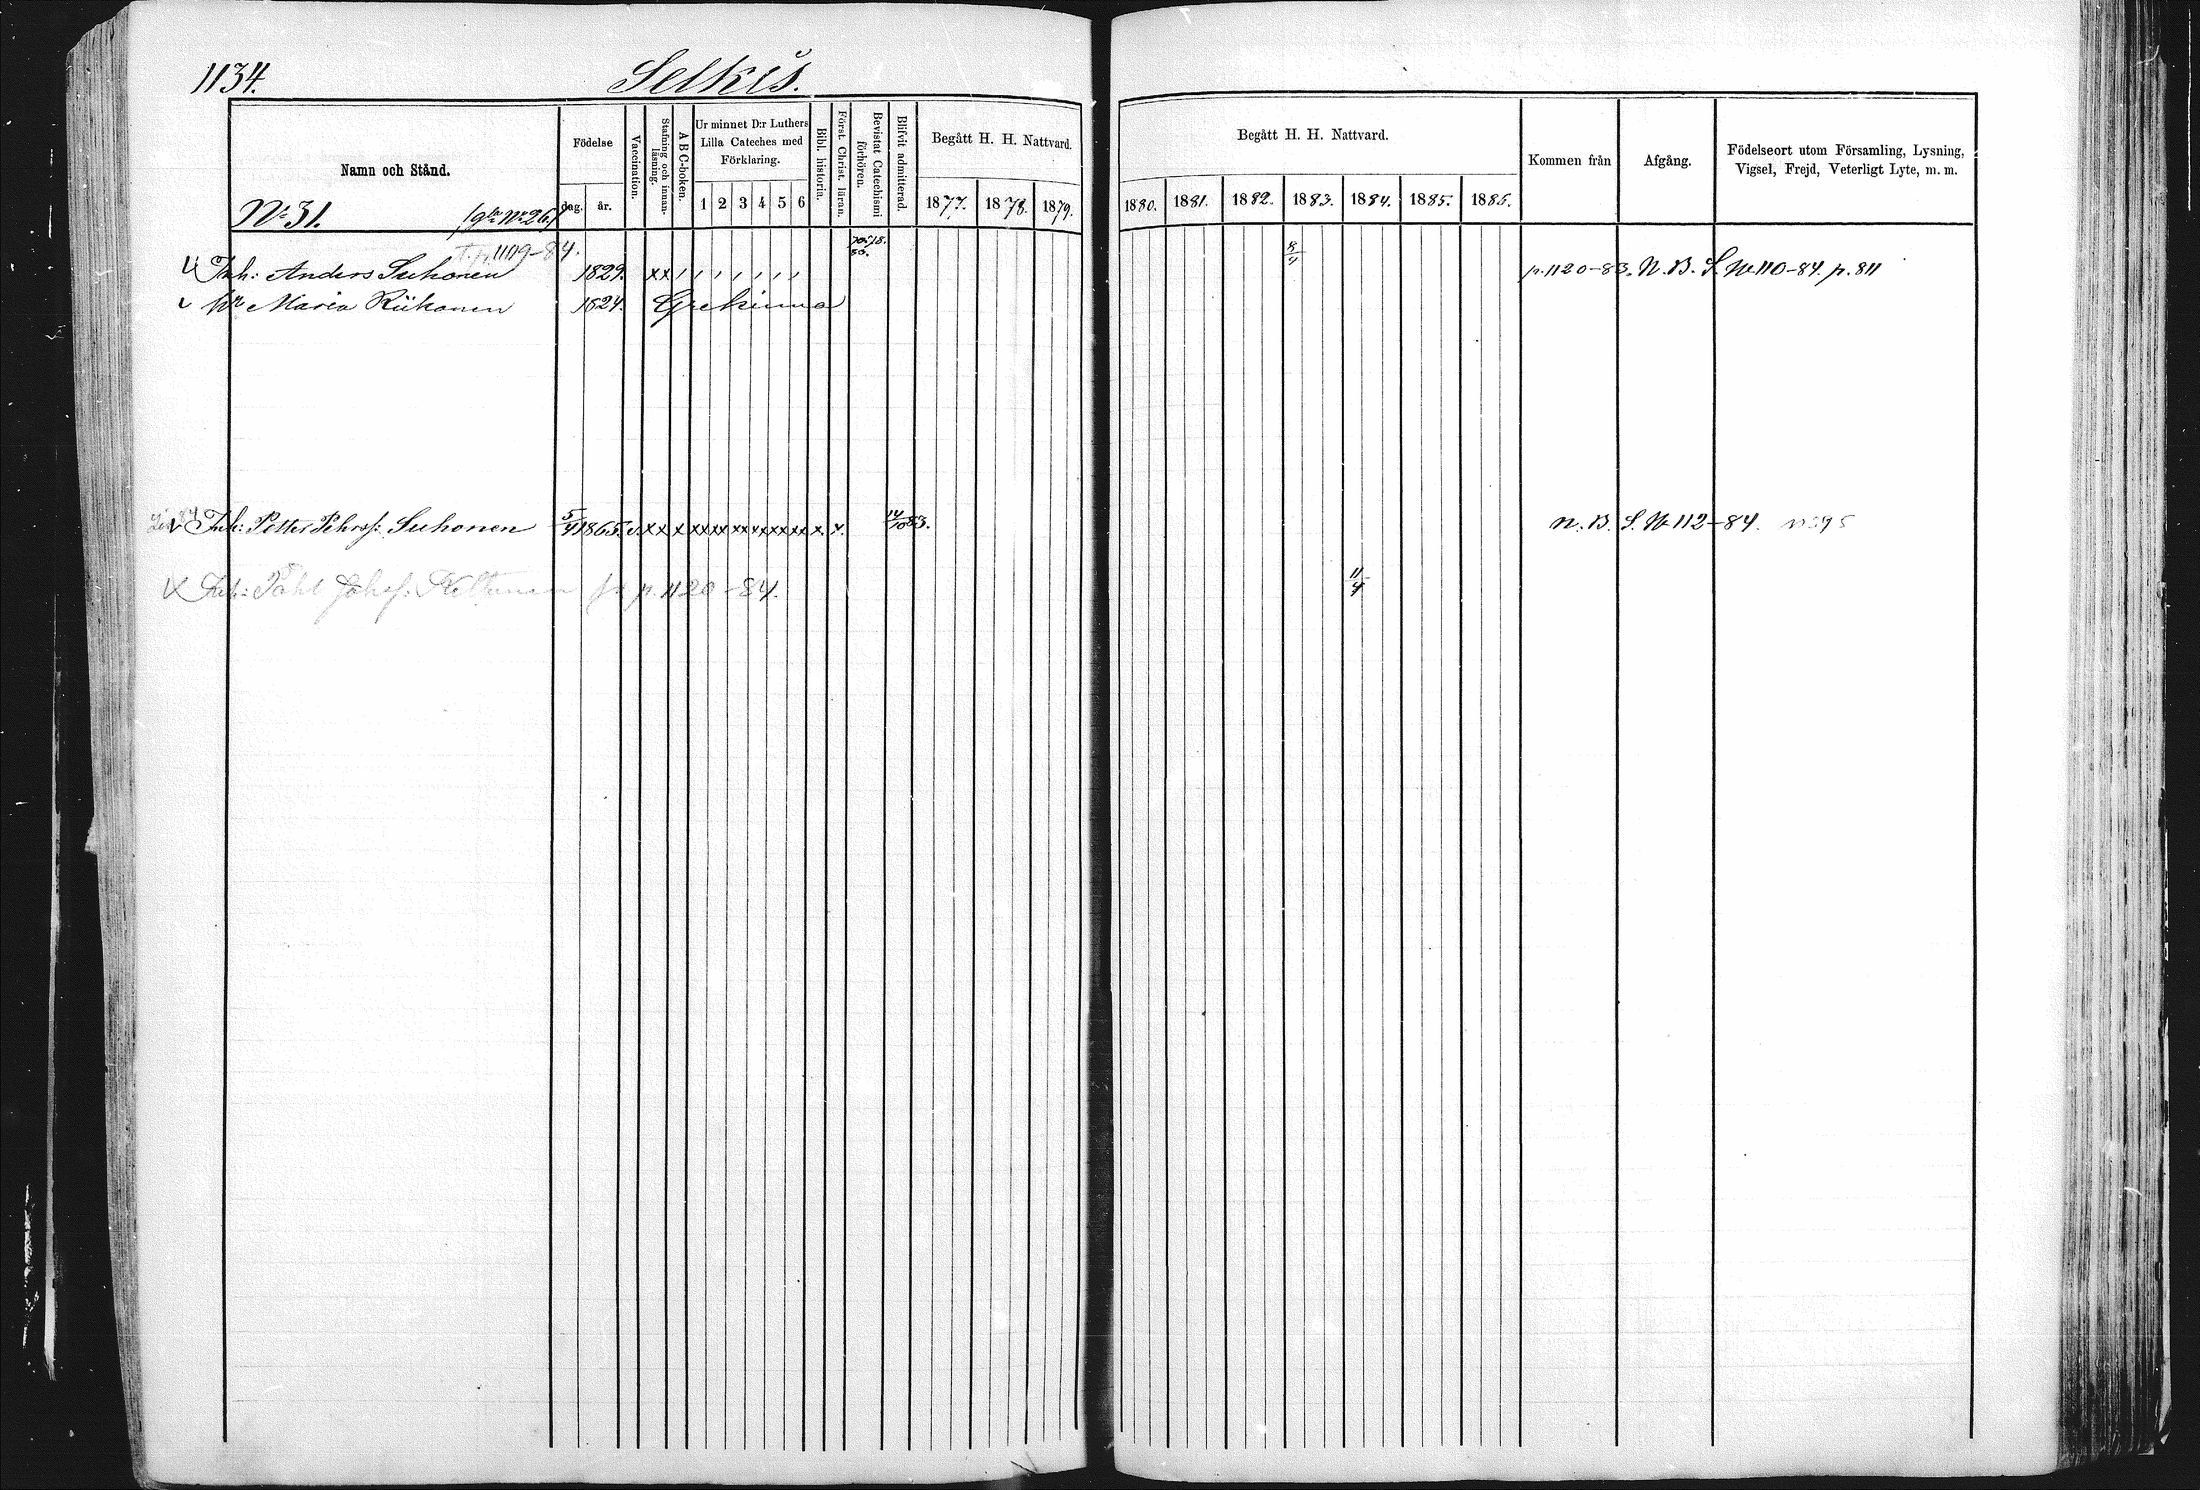 1134.
Selkis.
Namn och Stånd.
Födelse
dag.
år.
Vaccination.
Stafning och innanläsning.
A B C-boken.
Ur minnet D:r Luthers
Lilla Cateches med
Förklaring.
1 2 3 4 5 6
Bibl. historia.
Först. Christ. läran.
Bevistat Catechismi
förhören.
Blifvit admitterad.
Begått H. H. Nattvard.
1877. 1878. 1879.
Begått H. H. Nattvard.
1880. 1881. 1882. 1883. 1884. 1885. 1885.
Kommen från
Afgång.
Födelseort utom Församling, Lysning,
Vigsel, Frejd, Veterligt Lyte, m. m.
No 31.
T. p. 1109-84.
Inh: Anders Suhonen 1829. xx 8/4 p. 1120-83. N. B. S. No 110-84. p. 811
Maria Riikonen 1824. Grekinna
Inh: Petter Pehrsf: Suhonen 5/4 1865. v. x x x xx xx xx xx xx xx x. x. 14/10 83. N. B. S. No 112-84.
Inh: Påhl Johsf: p. 1120-84. 11/4